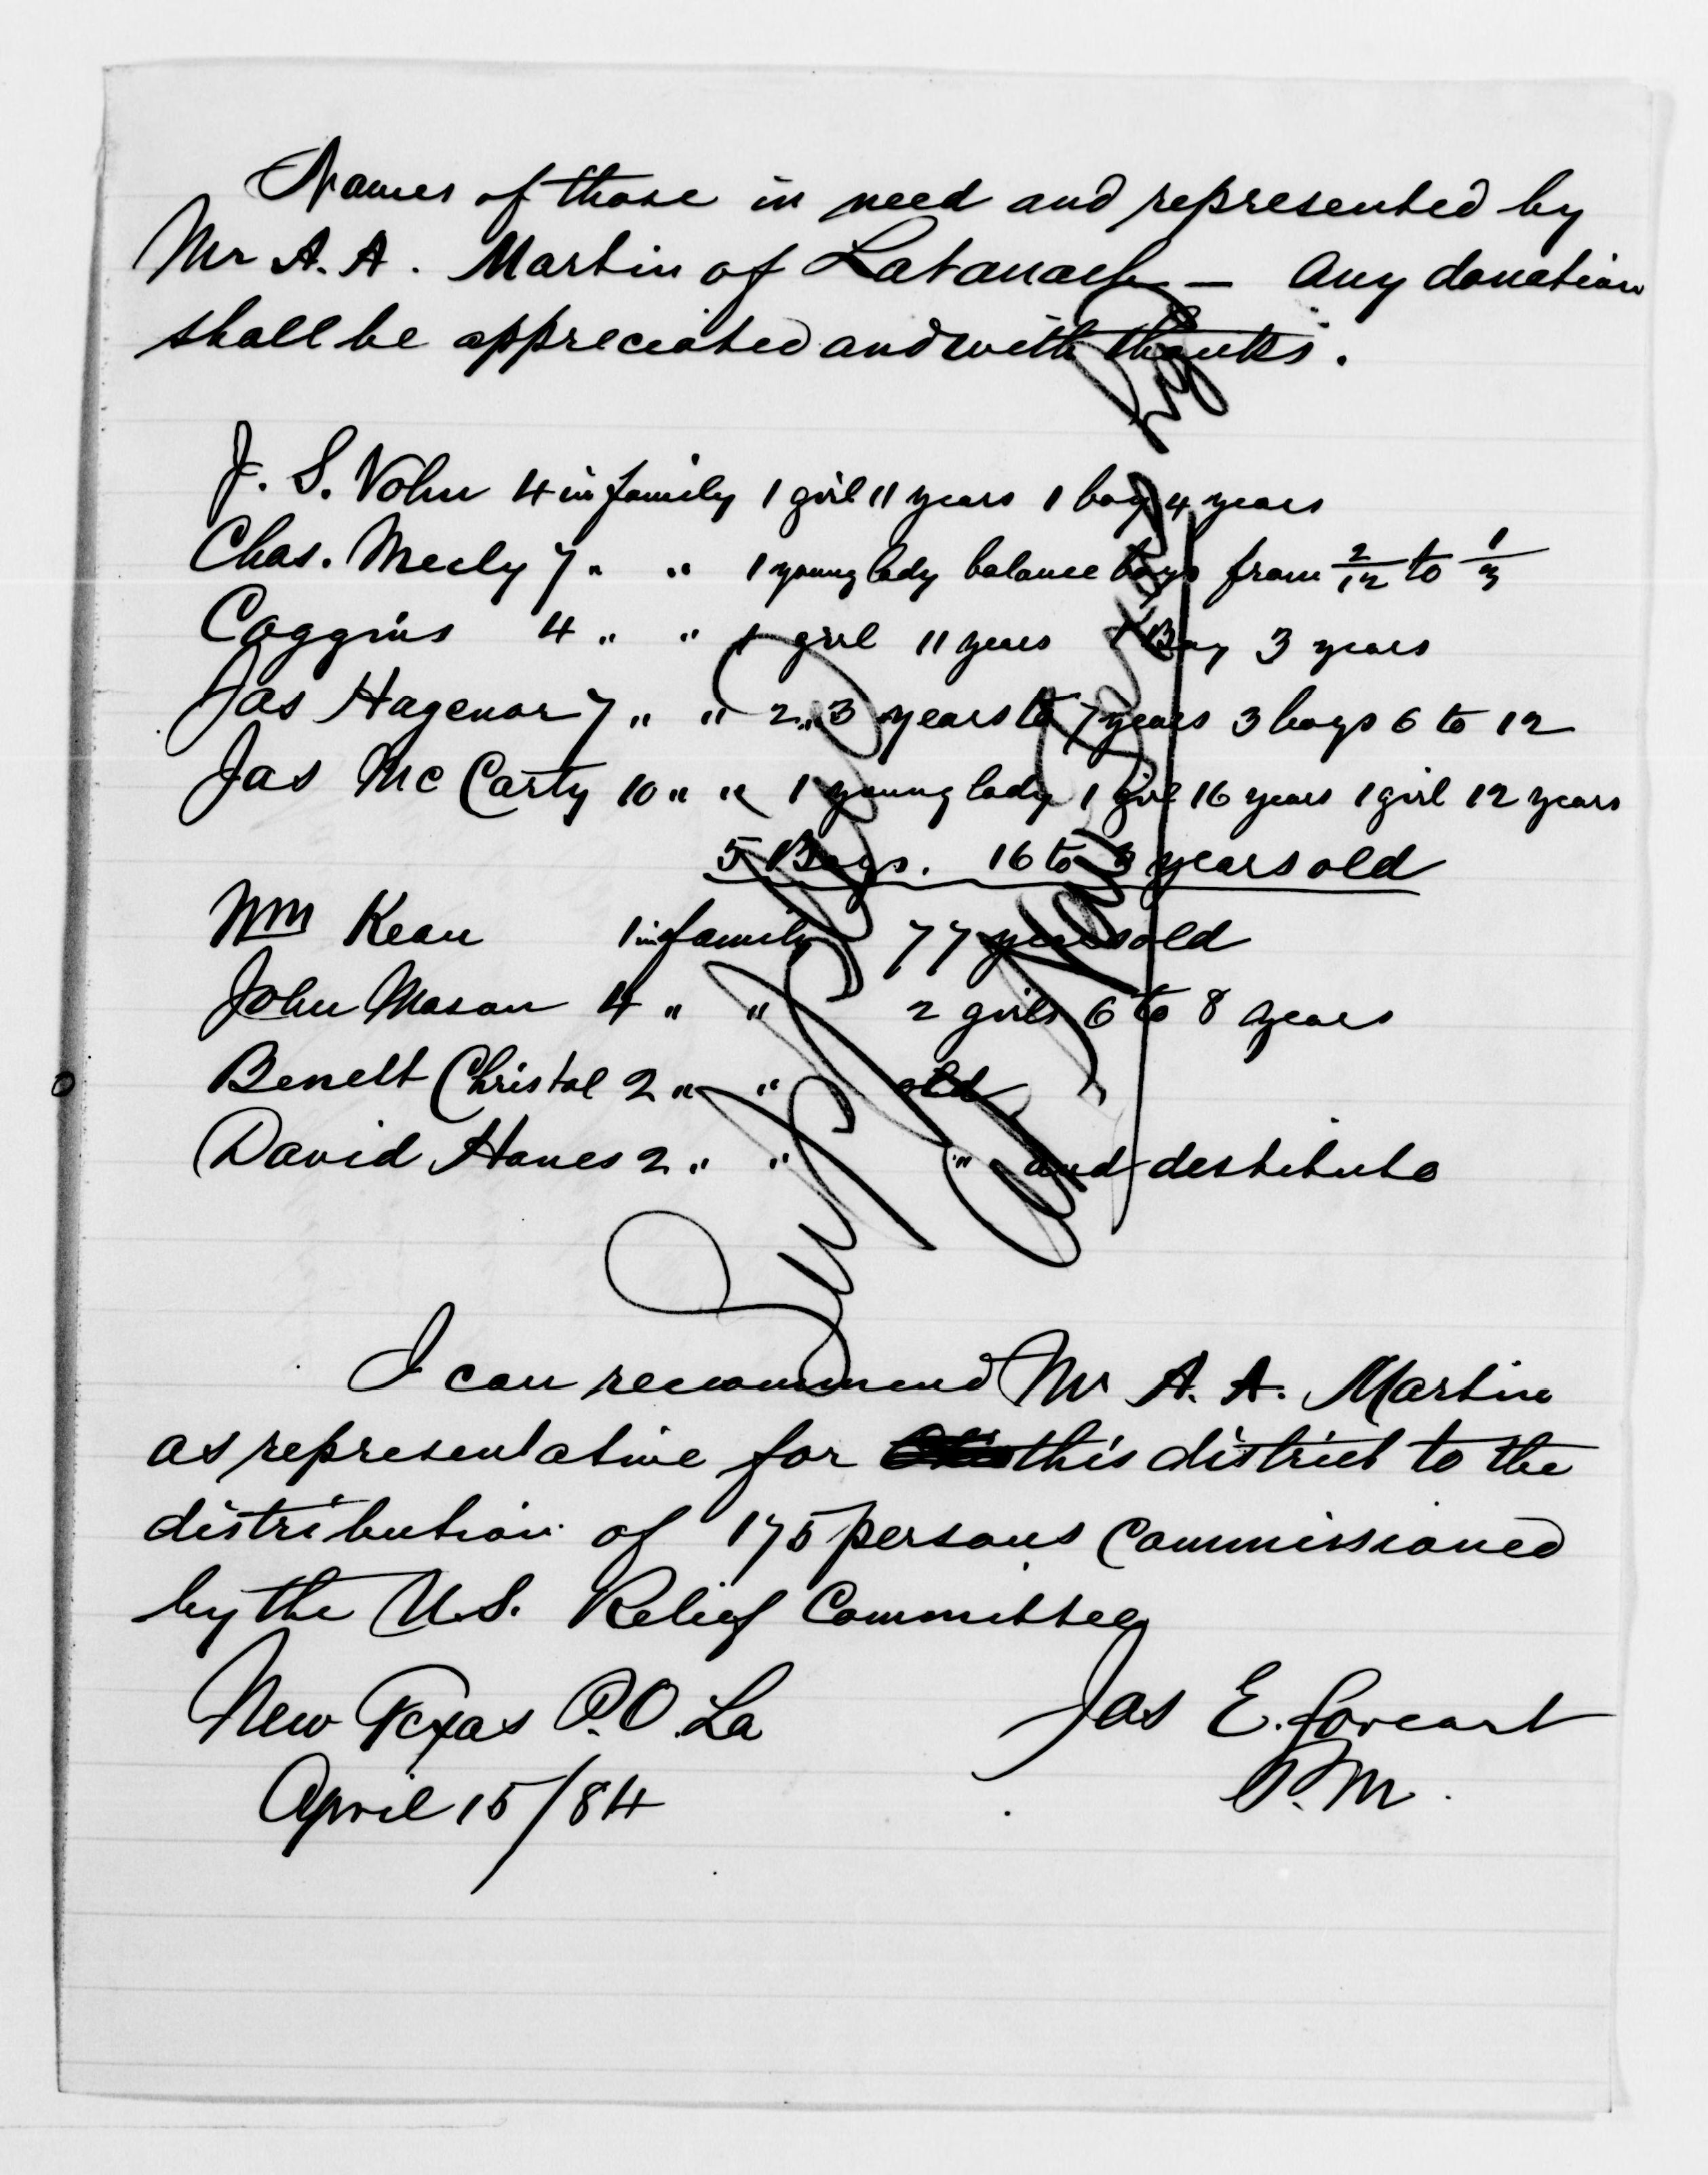 Names of those in need and represented by
Mr A. A. Martin of Latanach — Any donation
shall be appreciated and with thanks.
J. S. Vohn 4 in family 1 girl 11 years 1 boy 4 years
Chas. Meely 7 " " 1 young lady balance boys from 2/12 to 1/3
Coggins 4 " " 1 girl 11 years 1 Boy 3 years
Jas Hagenor 7 " " 2 " 3 years to 7 years 3 boys 6 to 12
Jas McCarty 10 " " 1 young lady 1 girl 16 years 1 girl 12 years
5 Boys. 16 to 3 years old
Wm Kean 1 in family 77 years old
John Mason 4 " " 2 girls 6 to 8 years
Benelt Christol 2 " " old
David Hanes 2 " " " and destitute
I can recommend Mr A. A. Martin
as representative for this district to the
distribution of 175 persons Commissioned
by the U.S. Relief Committee
New Texas P.O. La
Jas E.
April 15/84
P.M.
Supplied